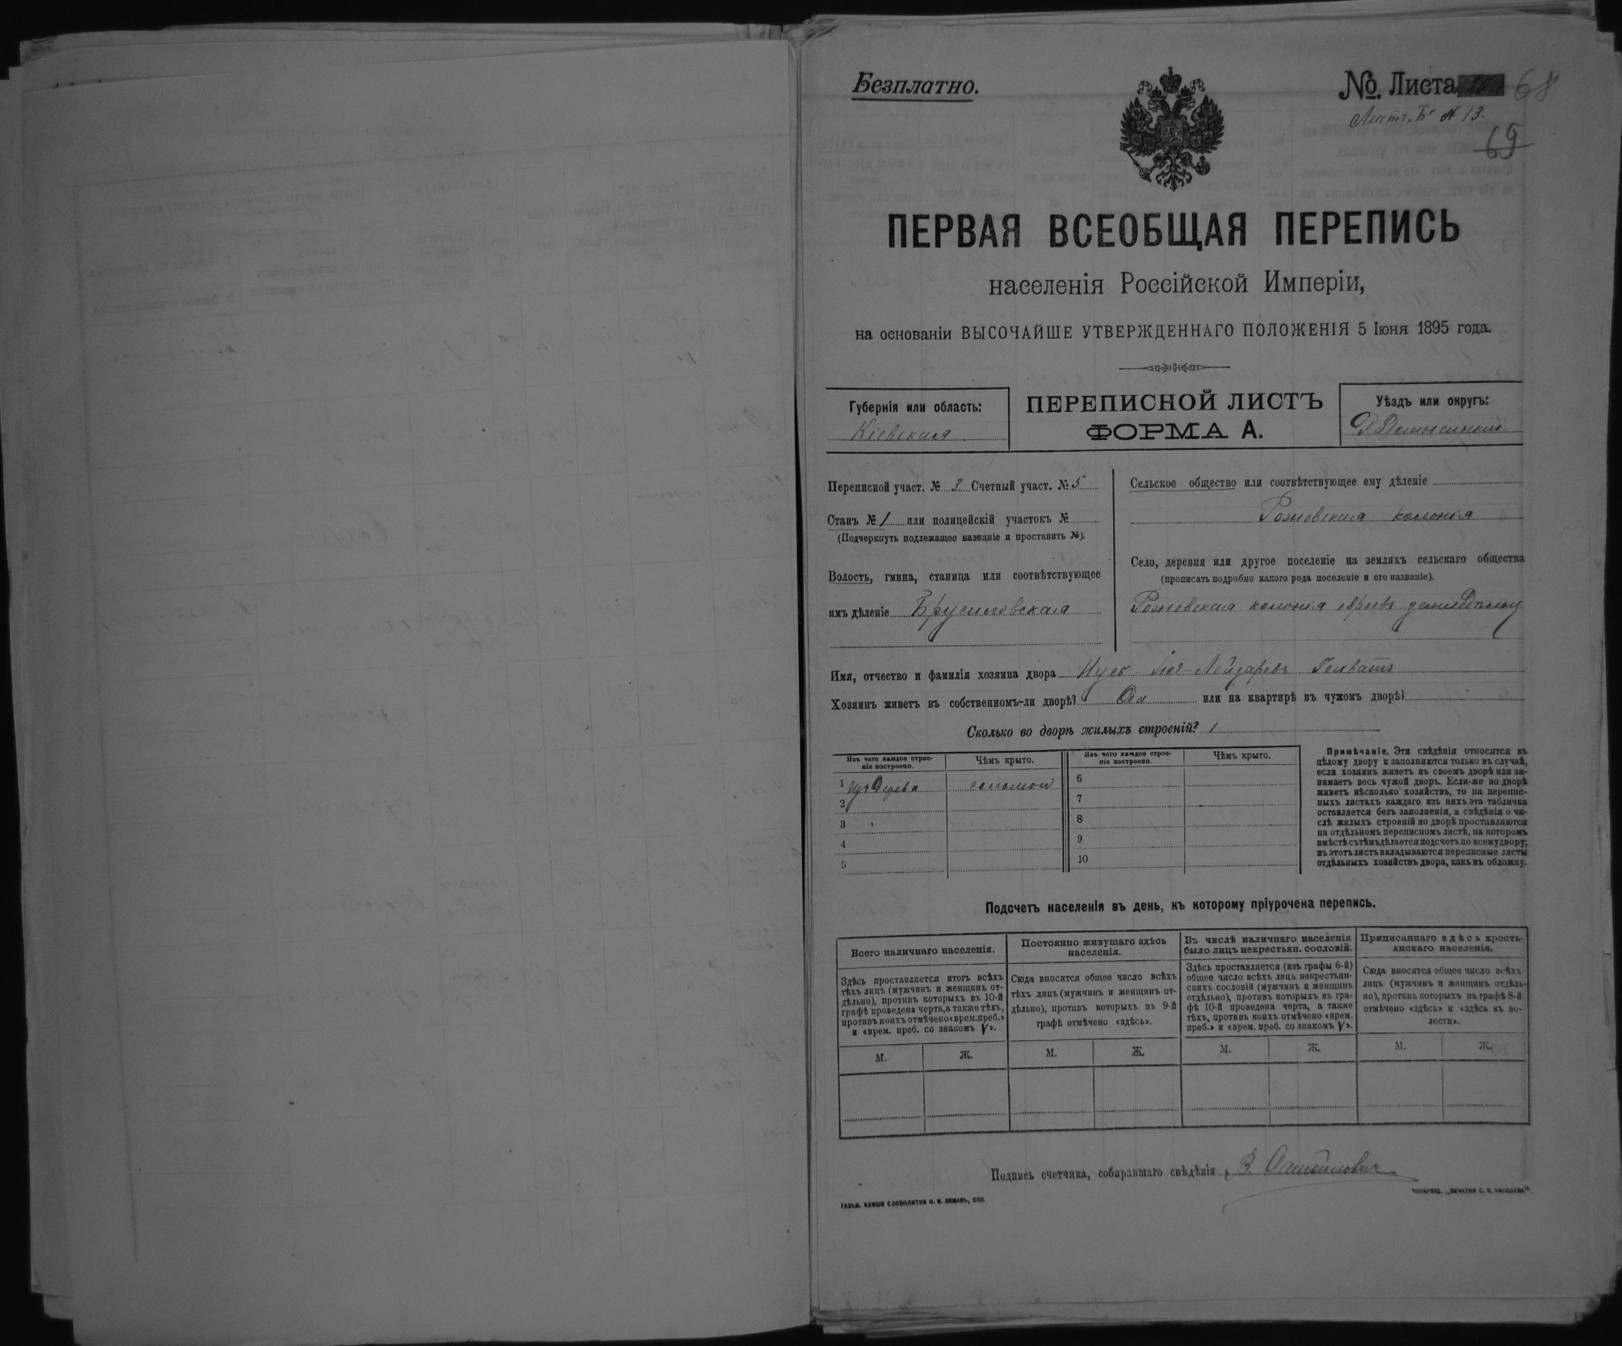 Безплатно.
№. Листа 68
Листъ „Б" № 13.
69
ПЕРВАЯ ВСЕОБЩАЯ ПЕРЕПИСЬ
населенія Россійской Имперіи,
на основаніи ВЫСОЧАЙШЕ УТВЕРЖДЕННАГО ПОЛОЖЕНІЯ 5 Іюня 1895 года.
Губернія или область:
Кіевская
ПЕРЕПИСНОЙ ЛИСТЪ
ФОРМА А.
Уѣздъ или округъ:
Переписной участ. № 3 Счетный участ. № 5
Станъ № 1 или полицейскій участокъ №
(Подчеркнуть подлежащее названіе и проставить №).
Волость, гмина, станица или соотвѣтствующее
имъ дѣленіе Брусиловская
Сельское общество или соотвѣтствующее ему дѣленіе
колонія
Село, деревня или другое поселеніе на земляхъ сельскаго общества
(прописать подробно какого рода поселеніе и его названіе).
колонія
Имя, отчество и фамилія хозяина двора
Хозяинъ живетъ въ собственномъ-ли дворѣ? Да или на квартирѣ въ чужомъ дворѣ?
Сколько во дворѣ жилыхъ строеній? 1
Изъ чего каждое строе-
ніе построено.
Чѣмъ крыто.
Изъ чего каждое строе-
ніе построено.
Чѣмъ крыто.
1 изъ дерева соломой
2
3
4
5
6
7
8
9
10
Примѣчаніе. Эти свѣдѣнія относятся къ
цѣлому двору и заполняются только въ случаѣ,
если хозяинъ живетъ въ своемъ дворѣ или за-
нимаетъ весь чужой дворъ. Если-же во дворѣ
живетъ нѣсколько хозяйствъ, то на перепис-
ныхъ листахъ каждаго изъ нихъ эта табличка
оставляется безъ заполненія, а свѣдѣнія о чи-
слѣ жилыхъ строеній во дворѣ проставляются
на отдѣльномъ переписномъ листѣ, на которомъ
вмѣстѣ съ тѣмъ дѣлается подсчетъ по всему двору;
въ этотъ листъ вкладываются переписные листы
отдѣльныхъ хозяйствъ двора, какъ въ обложку.
Подсчетъ населенія въ день, къ которому пріурочена перепись.
Всего наличнаго населенія.
Здѣсь проставляется итогъ всѣхъ
тѣхъ лицъ (мужчинъ и женщинъ от-
дѣльно), противъ которыхъ въ 10-й
графѣ проведена черта, а также тѣхъ,
противъ коихъ отмѣчено «врем. преб.»
и «врем. преб. со знакомъ V».
Постоянно живущаго здѣсь
населенія.
Сюда вносится общее число всѣхъ
тѣхъ лицъ (мужчинъ и женщинъ от-
дѣльно), противъ которыхъ въ 9-й
графѣ отмѣчено «здѣсь».
Въ числѣ наличнаго населенія
было лицъ некрестьян. сословій.
Здѣсь проставляется (изъ графы 6-й)
общее число всѣхъ лицъ некрестьян-
скихъ сословій (мужчинъ и женщинъ
отдѣльно), противъ которыхъ въ гра-
фѣ 10-й проведена черта, а также
тѣхъ, противъ коихъ отмѣчено «врем.
преб.» и «врем. преб. со знакомъ V».
Приписаннаго здѣсь кресть-
янскаго населенія.
Сюда вносится общее число всѣхъ
лицъ (мужчинъ и женщинъ отдѣль-
но), противъ которыхъ въ графѣ 8-й
отмѣчено «здѣсь» и «здѣсь въ во-
лости».
М. Ж. М. Ж. М. Ж. М. Ж.
Подпись счетчика, собиравшаго свѣдѣнія
ГАЛЬВ. КЛИШЕ СЛОВОЛИТНИ О. И. ЛЕМАНЪ, СПБ.
ТОВАРИЩ. „ПЕЧАТНЯ С. П. ЯКОВЛЕВА".